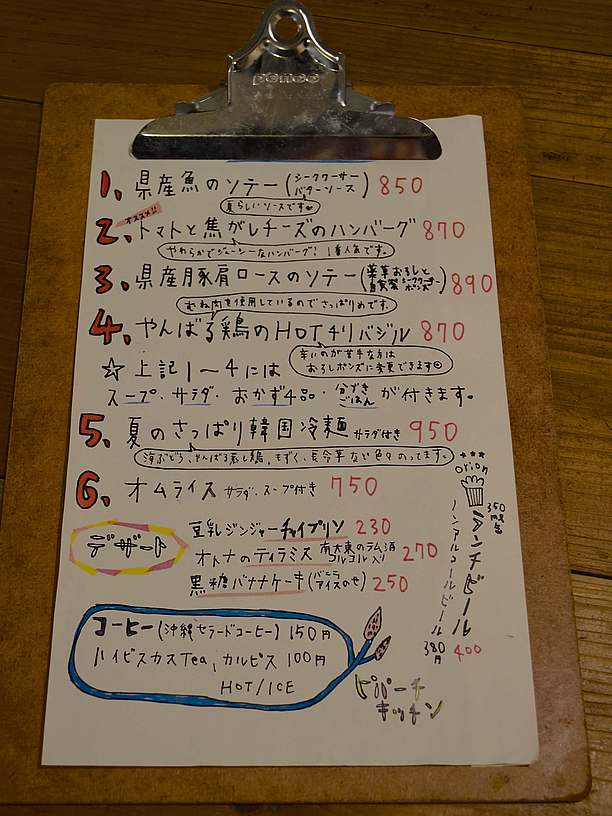 penco
1. 県産魚のソテー(シークワーサーバターソース) 850
夏らしいソースです
オススメ!!
2. トマトと焦がしチーズのハンバーグ 870
やわらかでジューシーなハンバーグ! 1番人気です。
3. 県産豚肩ロースのソテー(薬草おろしと自家製シークワーサーポンズ) 890
むね肉を使用しているのでさっぱりめです。
4. やんばる鶏のHOTチリバジル 870
辛いのが苦手な方は
おろしポンズに変更できます
☆上記1〜4には
スープ・サラダ・おかず4品・分づきごはんが付きます。
5. 夏のさっぱり韓国冷麺 サラダ付き 950
海ぶどう、やんばる蒸し鶏、もずく、長命草など色々のってます。
6. オムライス サラダ・スープ付き 750
デザート
豆乳ジンジャーチャイプリン 230
オトナのティラミス 南大東のラム酒コルコル入り 270
黒糖バナナケーキ(バニラアイスのせ) 250
orion
350ml缶
ランチビール 400
ノンアルコールビール 380円
コーヒー(沖縄セラードコーヒー) 150円
ハイビスカスTea, カルピス 100円
HOT/ICE
ピパーチ
キッチン